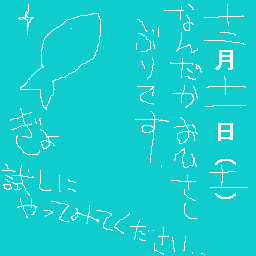 十二月十一日（土）
なんだかおひさし
ぶりです.
ぎょ
試しに
やってみてください...